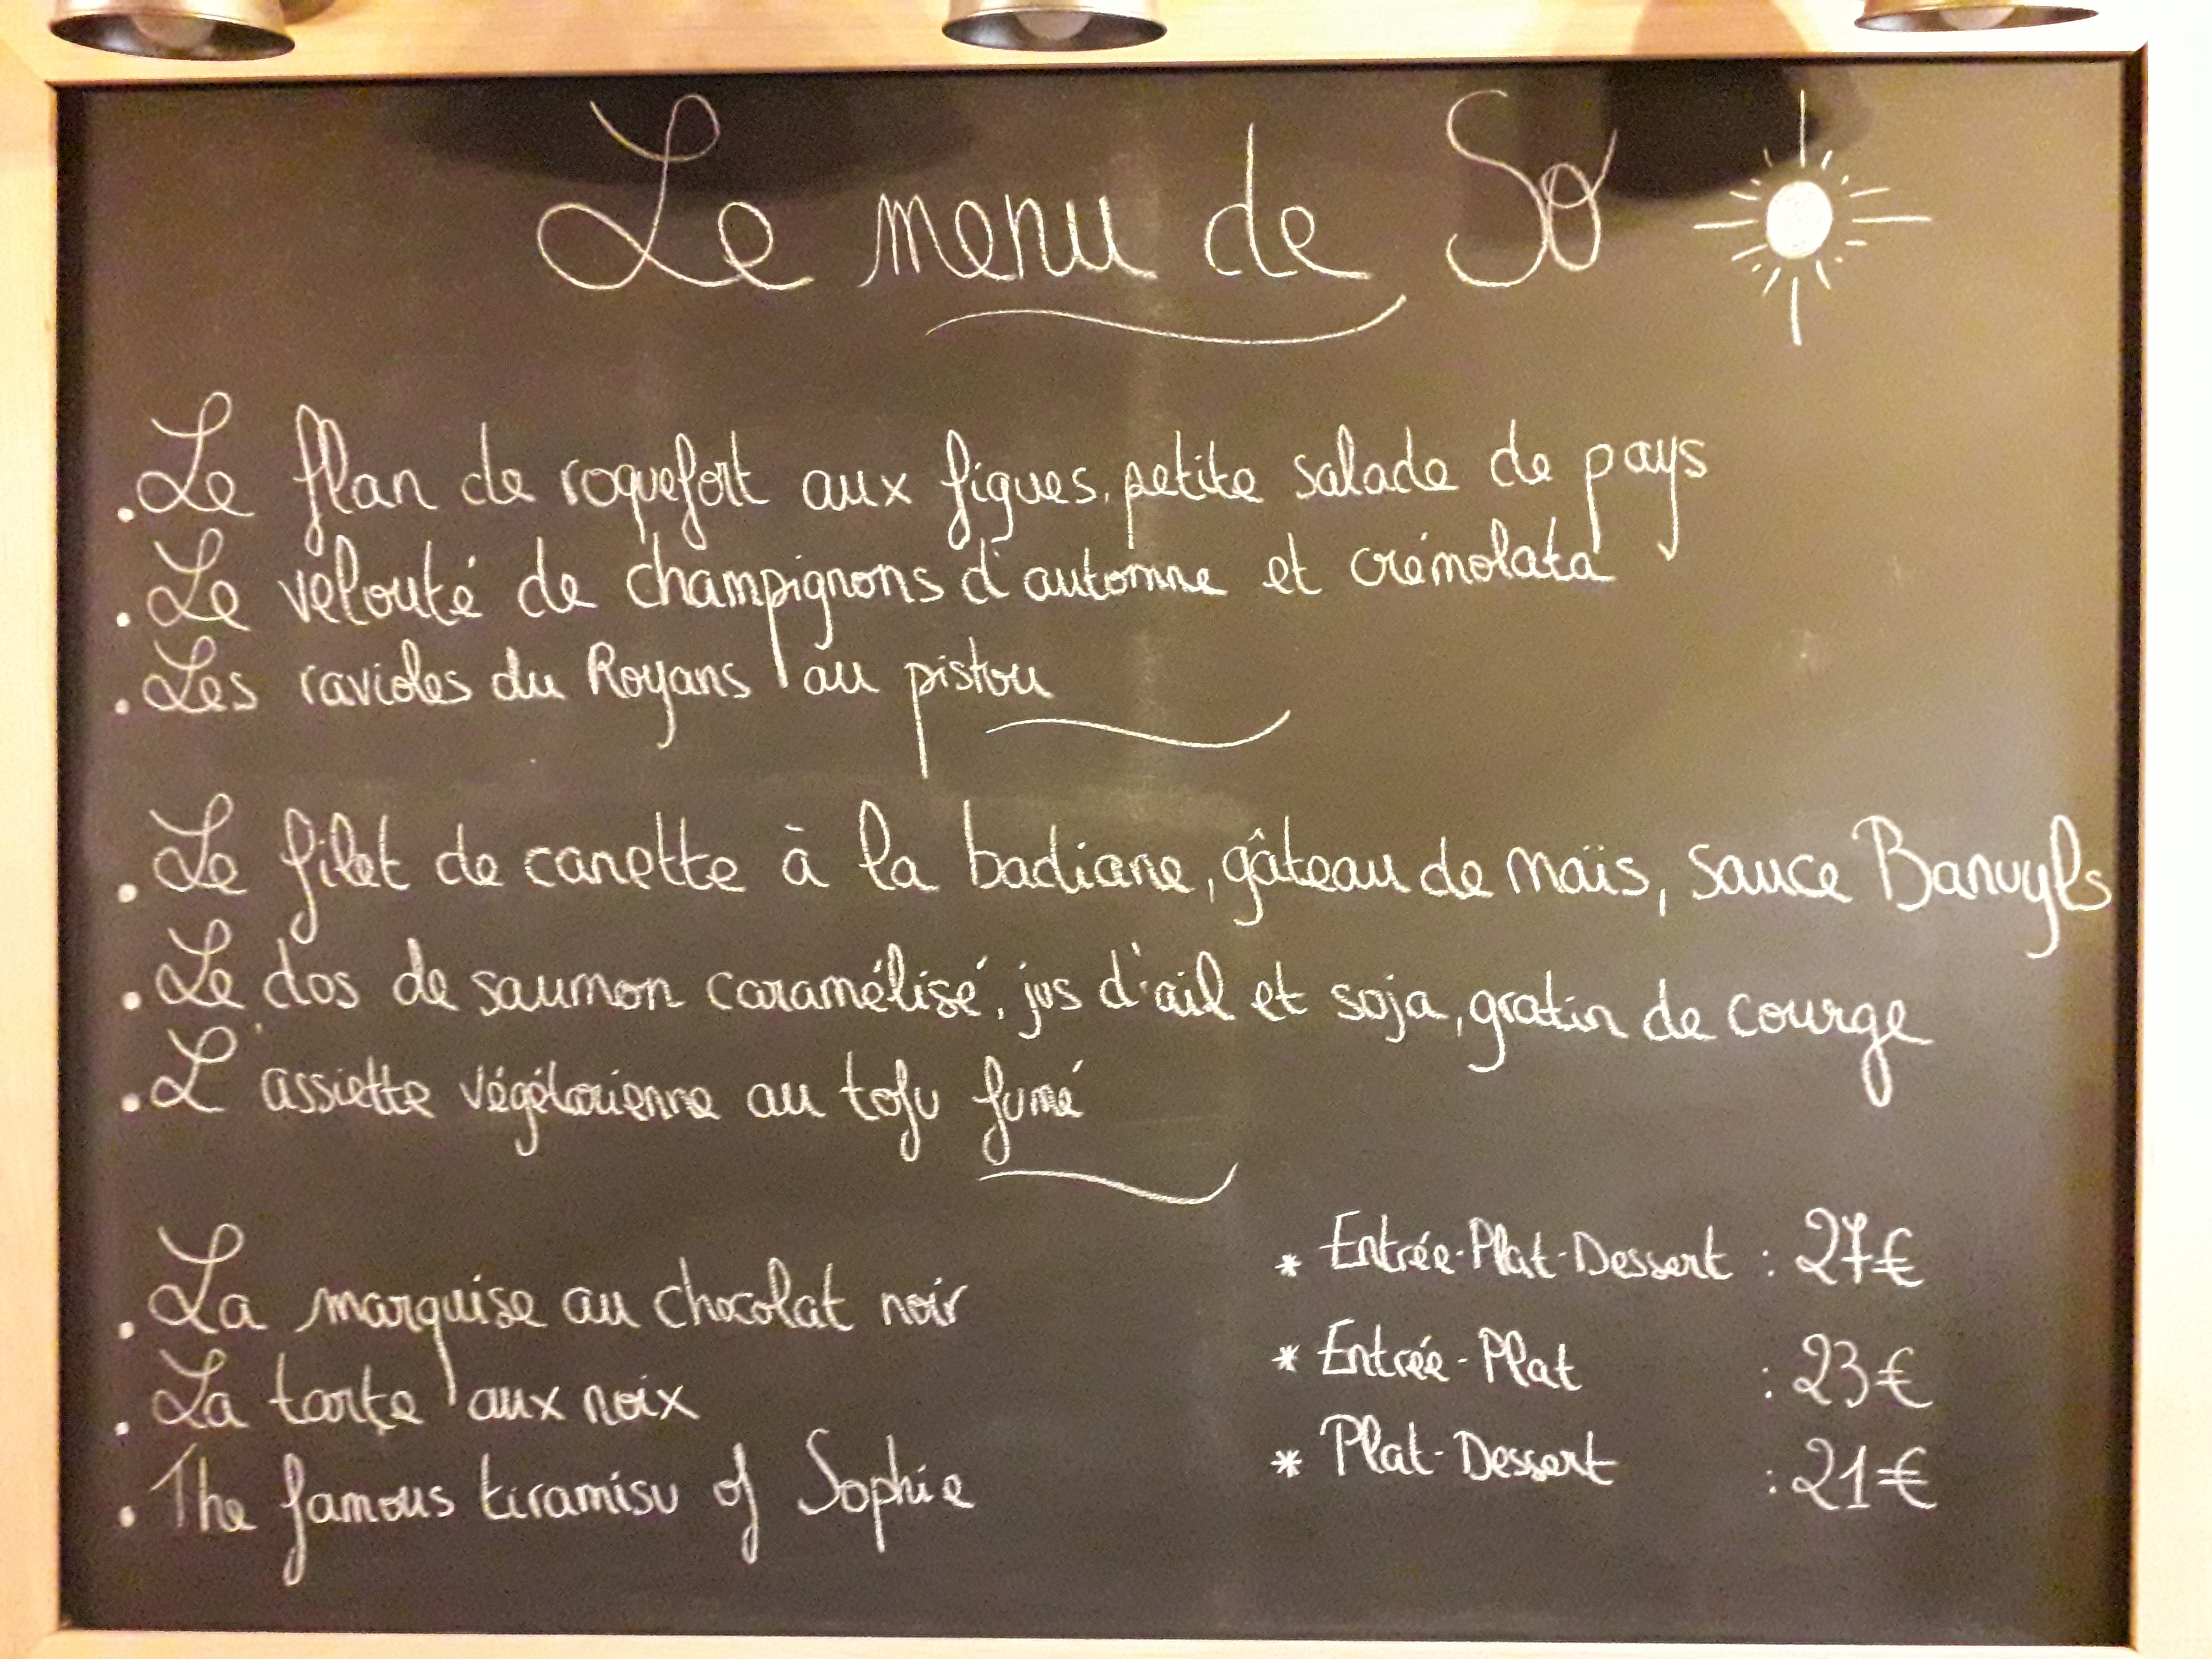 Le menu de So
.Le flan de roquefort aux figues, petite salade de pays
.Le velouté de champignons d'automne et crémolata
.Les ravioles du Royans au pistou
.Le filet de canette à la badiane, gâteau de maïs, sauce Banuyls
.Le dos de saumon caramélisé, jus d'ail et soja, gratin de courge
.L'assiette végétarienne au tofu fumé
.La marquise au chocolat noir
.La tarte aux noix
.The famous tiramisu of Sophie
* Entrée-Plat-Dessert : 27€
* Entrée-Plat : 23€
* Plat-Dessert : 21€